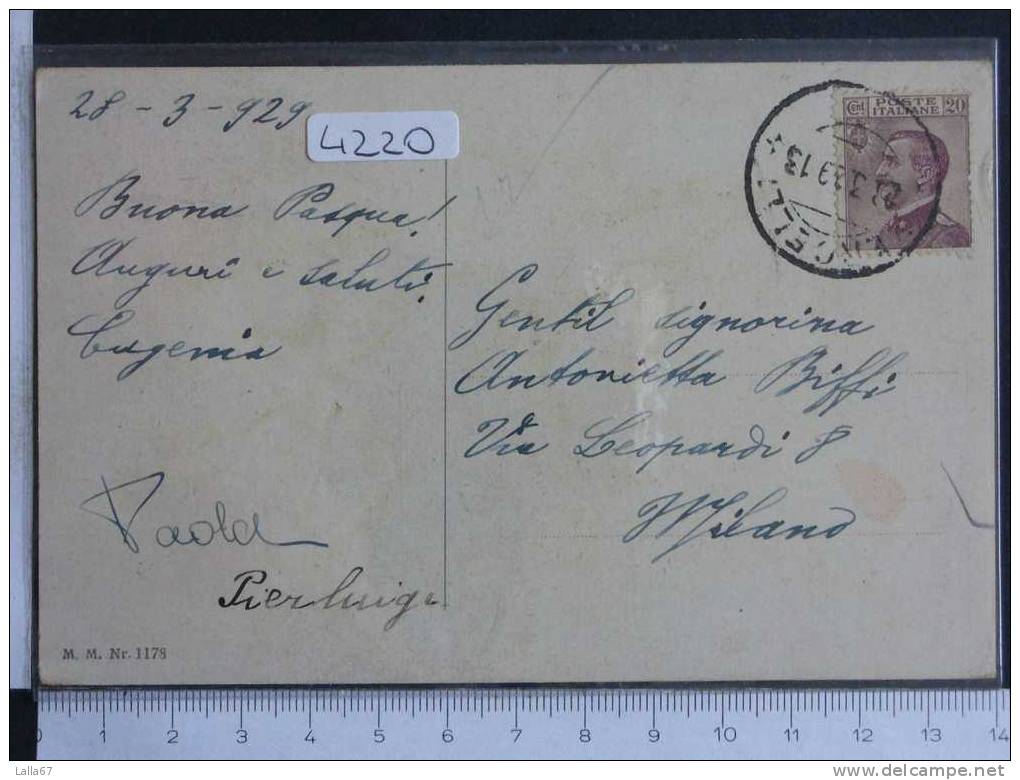 28 - 3 - 929
4220
Cent POSTE 20
ITALIANE
Buona Pasqua!
Auguri e saluti.
Eugenia
Paola
Pierluigi
Gentil signorina
Antonietta Biffi
Via Leopardi 8
Milano
M. M. Nr. 1178
0 1 2 3 4 5 6 7 8 9 10 11 12 13 14
Lalla67
delcampe.net